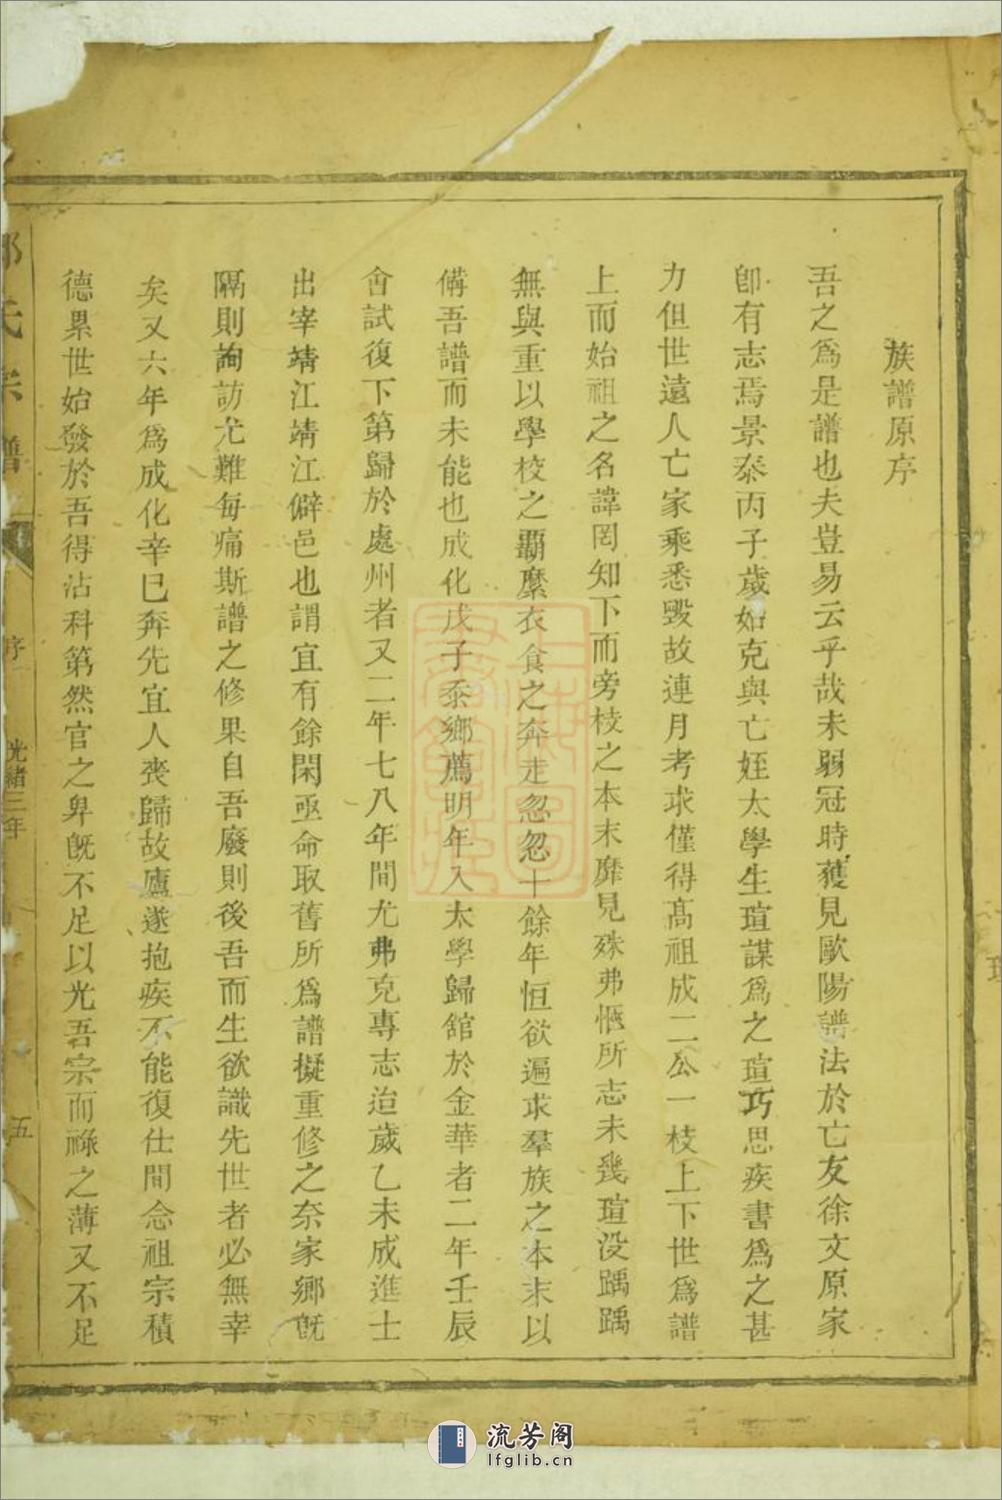 族譜原序
吾之爲是譜也夫豈易云乎哉未弱冠時獲見歐陽譜法於亡友徐文原家
卽有志焉景泰丙子歲始克與亡姪太學生瑄謀爲之瑄巧思疾書爲之甚
力但世遠人亡家乘悉毀故連月考求僅得高祖成二公一枝上下世爲譜
上而始祖之名諱罔知下而旁枝之本末靡見殊弗愜所志未幾瑄没踽踽
無與重以學校之覊縻衣食之奔走忽忽十餘年恒欲遍求羣族之本末以
備吾譜而未能也成化戊子忝鄉薦明年入太學歸舘於金華者二年壬辰
會試復下第歸於處州者又二年七八年間尤弗克專志迨歲乙未成進士
出宰靖江靖江僻邑也謂宜有餘閑亟命取舊所爲譜擬重修之奈家鄉旣
隔則詢訪尤難每痛斯譜之修果自吾廢則後吾而生欲識先世者必無幸
矣又六年爲成化辛巳奔先宜人喪歸故廬遂抱疾不能復仕間念祖宗積
德累世始發於吾得沾科第然官之卑旣不足以光吾宗而祿之薄又不足
氏宗譜
序
光緒三年
五
流芳阁
lfglib.cn